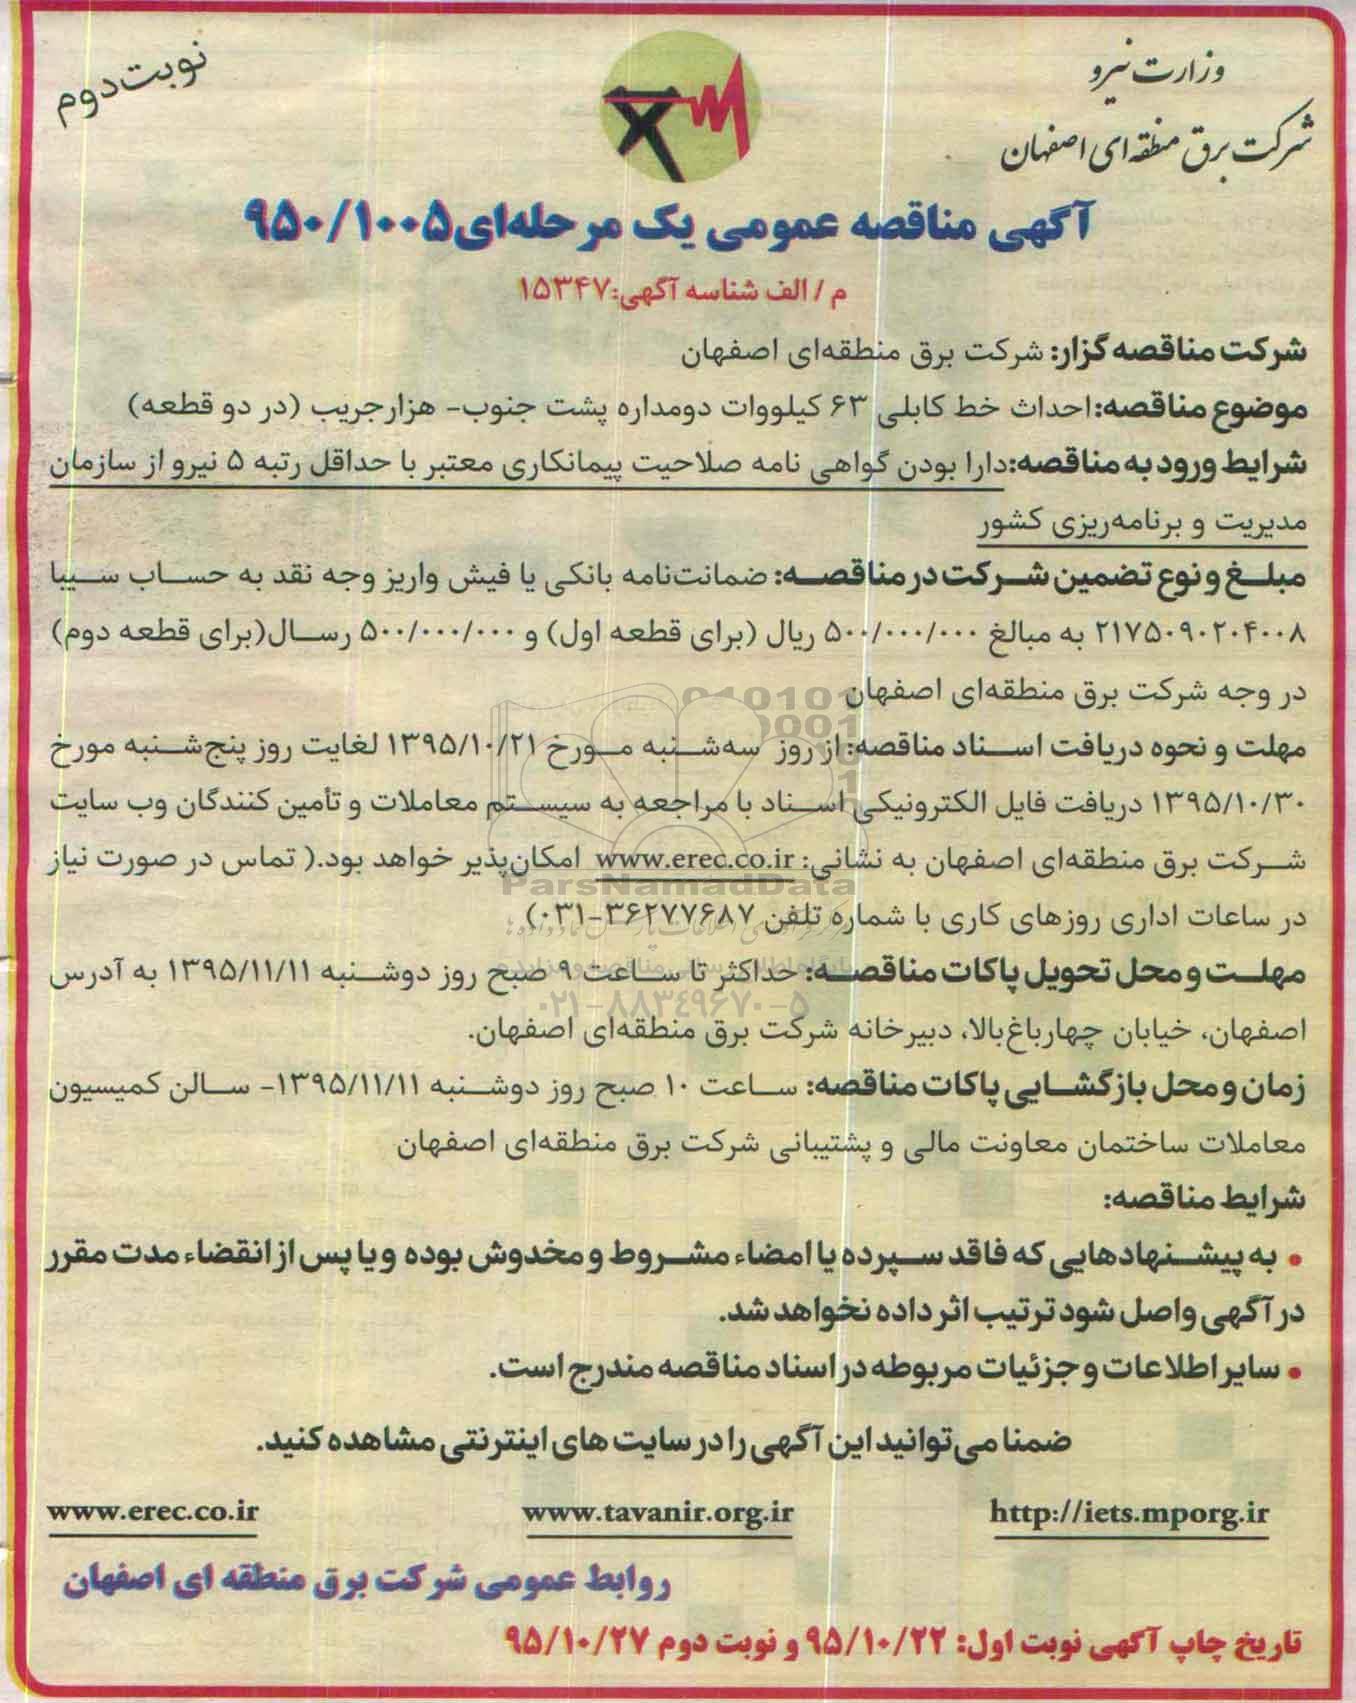 وزارت نیرو
شرکت برق منطقه‌ای اصفهان
نوبت دوم
آگهی مناقصه عمومی یک مرحله‌ای ۹۵۰/۱۰۰۵
م / الف شناسه آگهی: ۱۵۳۴۷
شرکت مناقصه گزار: شرکت برق منطقه‌ای اصفهان
موضوع مناقصه: احداث خط کابلی ۶۳ کیلووات دومداره پشت جنوب- هزارجریب (در دو قطعه)
شرایط ورود به مناقصه: دارا بودن گواهی نامه صلاحیت پیمانکاری معتبر با حداقل رتبه ۵ نیرو از سازمان
مدیریت و برنامه‌ریزی کشور
مبلغ و نوع تضمین شرکت در مناقصه: ضمانت‌نامه بانکی یا فیش واریز وجه نقد به حساب سیبا
۲۱۷۵۰۹۰۲۰۴۰۰۸ به مبالغ ۵۰۰/۰۰۰/۰۰۰ ریال (برای قطعه اول) و ۵۰۰/۰۰۰/۰۰۰ رسال(برای قطعه دوم)
در وجه شرکت برق منطقه‌ای اصفهان
مهلت و نحوه دریافت اسناد مناقصه: از روز سه‌شنبه مورخ ۱۳۹۵/۱۰/۲۱ لغایت روز پنج‌شنبه مورخ
۱۳۹۵/۱۰/۳۰ دریافت فایل الکترونیکی اسناد با مراجعه به سیستم معاملات و تأمین کنندگان وب سایت
شرکت برق منطقه‌ای اصفهان به نشانی: www.erec.co.ir امکان‌پذیر خواهد بود.( تماس در صورت نیاز
ParsNamadData
در ساعات اداری روزهای کاری با شماره تلفن ۳۶۲۷۷۶۸۷-۰۳۱)
مهلت و محل تحویل پاکات مناقصه: حداکثر تا ساعت ۹ صبح روز دوشنبه ۱۳۹۵/۱۱/۱۱ به آدرس
۰۲۱-۸۸۳۴۹۶۷۰-۵
اصفهان، خیابان چهارباغ‌بالا، دبیرخانه شرکت برق منطقه‌ای اصفهان.
زمان و محل بازگشایی پاکات مناقصه: ساعت ۱۰ صبح روز دوشنبه ۱۳۹۵/۱۱/۱۱- سالن کمیسیون
معاملات ساختمان معاونت مالی و پشتیبانی شرکت برق منطقه‌ای اصفهان
شرایط مناقصه:
• به پیشنهادهایی که فاقد سپرده یا امضاء مشروط و مخدوش بوده و یا پس از انقضاء مدت مقرر
در آگهی واصل شود ترتیب اثر داده نخواهد شد.
• سایر اطلاعات و جزئیات مربوطه در اسناد مناقصه مندرج است.
ضمنا می‌توانید این آگهی را در سایت های اینترنتی مشاهده کنید.
http://iets.mporg.ir
www.tavanir.org.ir
www.erec.co.ir
روابط عمومی شرکت برق منطقه ای اصفهان
تاریخ چاپ آگهی نوبت اول: ۹۵/۱۰/۲۲ و نوبت دوم ۹۵/۱۰/۲۷